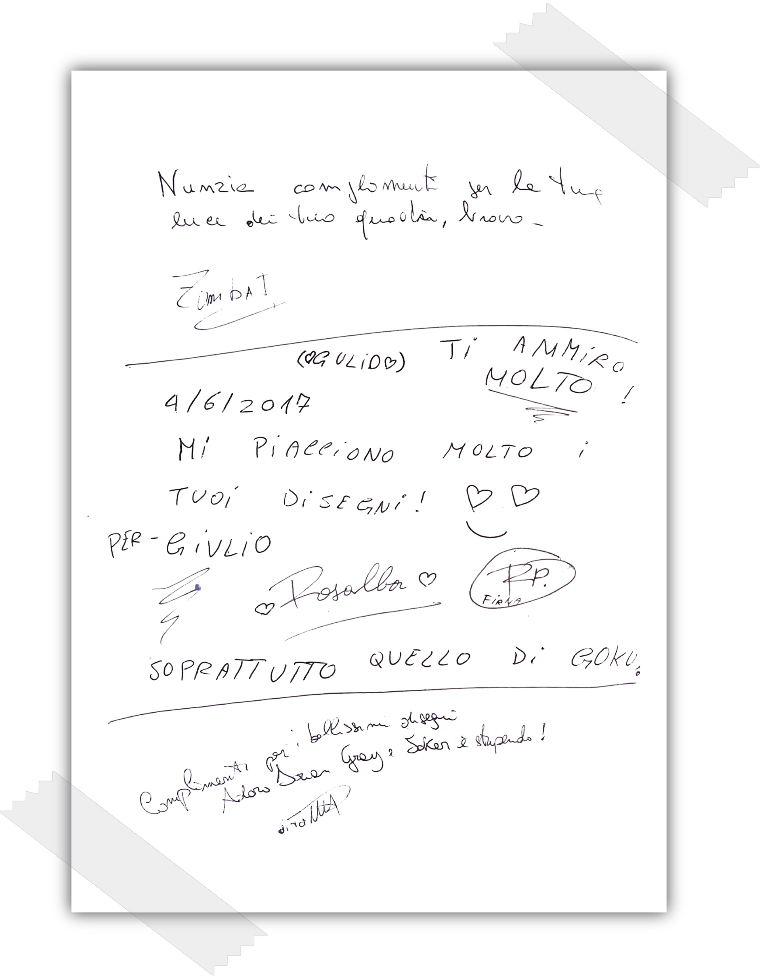 Nunzia complimenti per le tue
luci dei tuoi quadri, bravo -
ZimbaT
(♡GULIDO♡) Ti AMMiRO
MOLTO!
4/6/2017
Mi PiACCiONO MOLTO i
TUOi DiSEGNi! ♡♡
PER - GiULIO
♡ Rosalba ♡ R.P.
FiRMA
SOPRATTUTTO QUELLO Di GOKU.
Complimenti per i bellissimi disegni
Adoro Dorian Gray e Joker è stupendo!